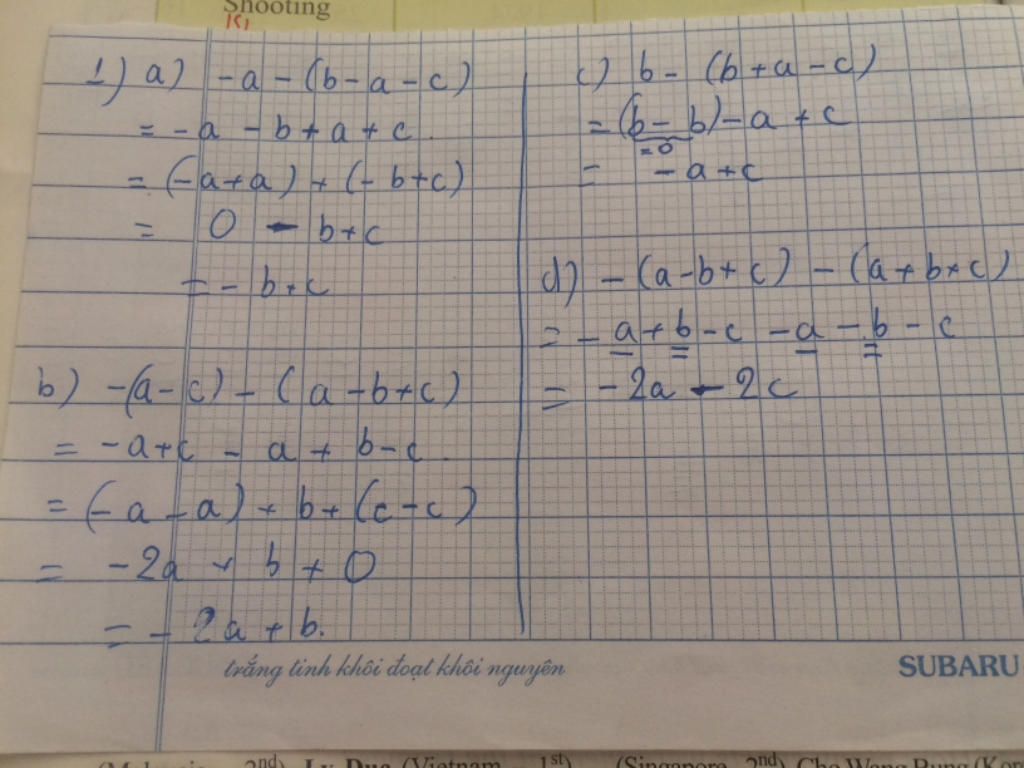 Shooting
1) a) -a-(b-a-c)
= -a-b+a+c.
= (-a+a)+(-b+c)
= 0 - b+c
= - b+c
b) -(a-c)-(a-b+c)
= -a+c - a + b-c.
= (-a-a)+b+(c-c)
= -2a + b + 0
= - 2a+b.
c) b-(b+a-c)
=(b-b)-a+c
=0
= -a+c
d) -(a-b+c)-(a+b+c)
= -a+b-c -a-b-c
= -2a - 2c
trắng tinh khôi đoạt khôi nguyên
SUBARU
2nd), Ly Duc (Vietnam - 1st) (Singapore 2nd)